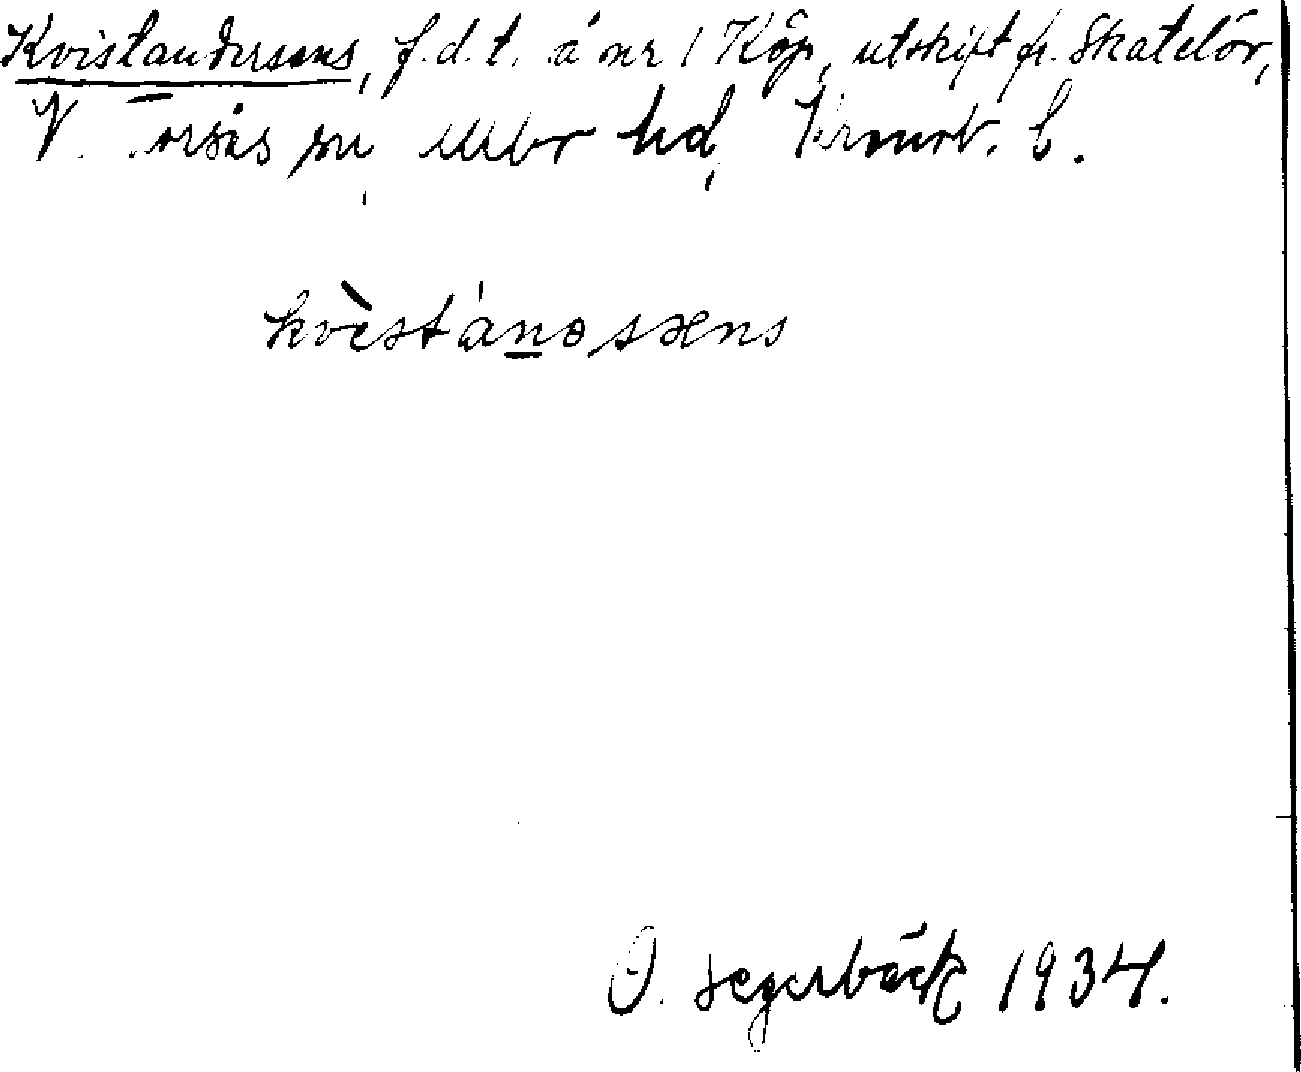 Kvistandersens, f.d.t. å nr 1 Köp, utskift fr. Skatelöv,
V. Torsås sn, Allbo hd, Kronob. l.
kvèstánossens
O. Segerbäck 1934.